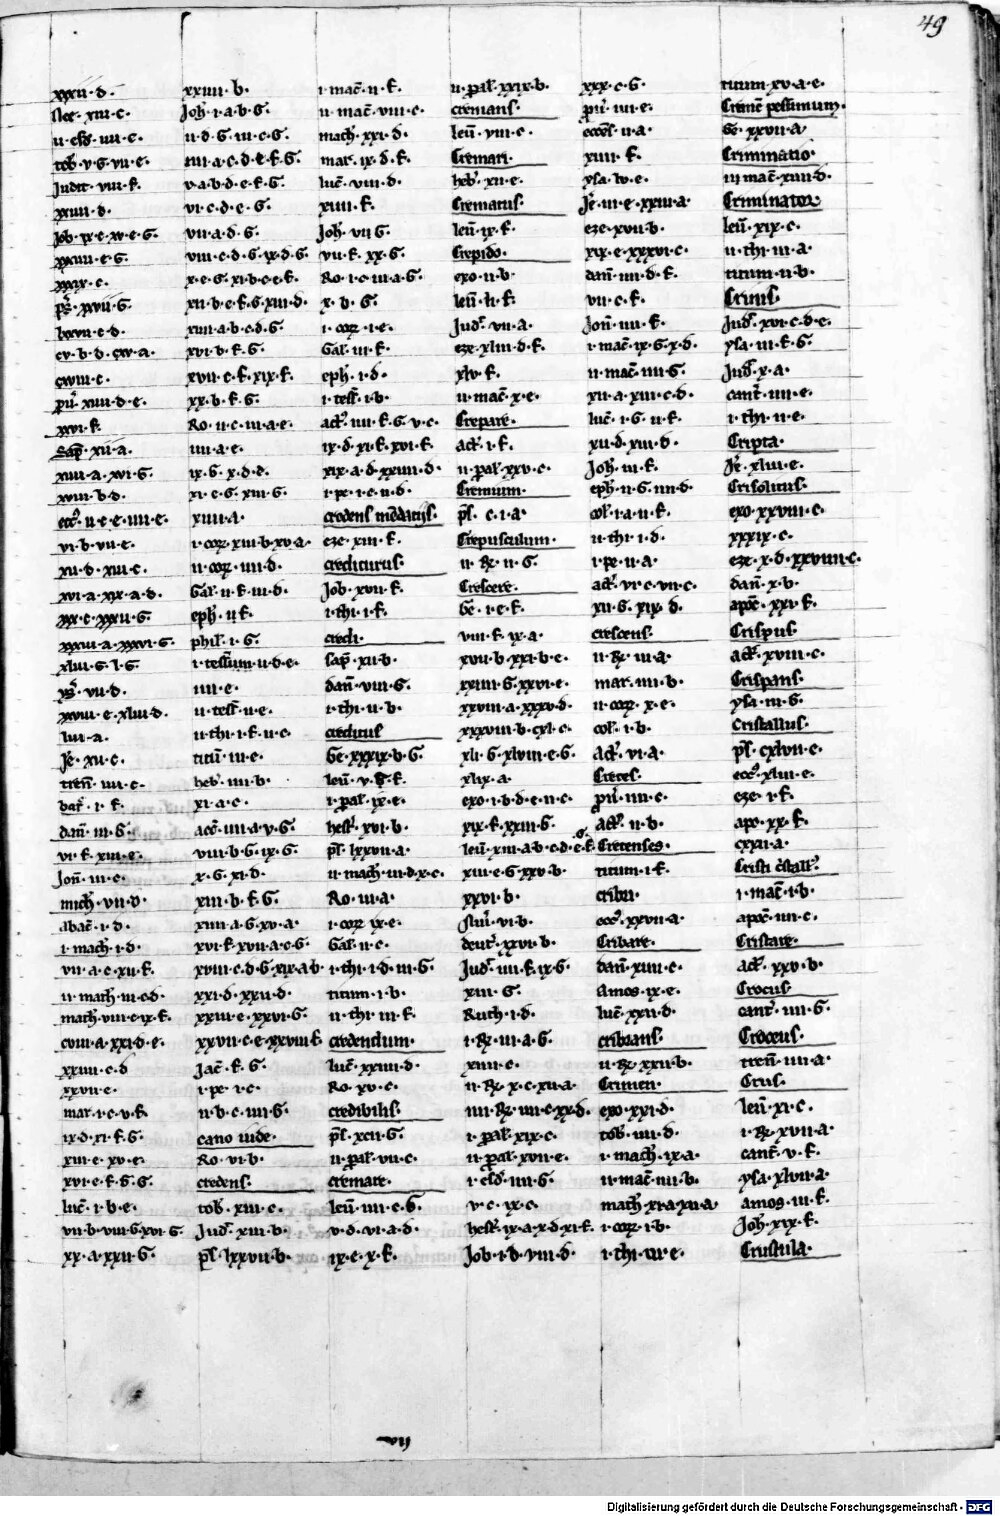 49
xxxii·d·
nee·xiii·c·
ii·esd·iiii·c·
tob·v·g·vii·e·
Judit·viii·f·
xxiiii·d·
Job·ix·e·xv·e·g·
xxxiiii·e·g·
xxxix·c·
ps·xxvii·g·
lxxvii·c·d·
cv·b·d·cxv·a·
cxviii·c·
pru·xiiii·d·e·
xxvi·f·
Sap·xii·a·
xiiii·a·xvi·g·
xviii·b·d·
vi·b·vii·e·
xii·d·xiii·c·
xvi·a·xix·a·d·
xix·c·xxxii·g·
xlvii·g·l·g·
ys·vii·d·
xxviii·e·xliii·d·
lvii·a·
Je·xii·c·
tren·iiii·c·
bar·i·f·
dan·iii·g·
vi·f·xiii·e·
Jon·iii·e·
mich·vii·d·
abac·i·d·
i·mach·i·d·
vii·a·c·xii·f·
ii·mach·iii·c·d·
math·viii·c·ix·f·
xxiiii·c·d
xxvii·e·
mar·i·c·v·f·
ix·d·xi·f·g·
xiii·e·xv·e·
xvi·e·f·g·g·
luc·i·b·e·
vii·b·viii·g·xvi·g·
xx·a·xxii·g·
xxiiii·b·
Joh·i·a·b·g·
ii·d·g·iii·c·g·
iiii·a·c·d·e·f·g·
v·a·b·d·e·f·g·
vi·c·d·e·g·
vii·a·d·g·
viii·c·d·g·ix·d·g·
x·e·g·xi·b·c·e·f·
xii·b·e·f·g·xiii·d·
xiiii·a·b·c·d·g·
xvi·b·f·g·
xvii·c·f·xix·f·
xx·b·f·g·
Ro·ii·c·iii·a·e·
iiii·a·e·
ix·g·x·d·e·
xi·e·g·xiii·g·
xiiii·a·
i·cor·xiii·b·xv·a·
ii·cor·iiii·d·
Gal·ii·f·iii·d·
eph·ii·f·
phil·i·g·
i·tessum·ii·d·e·
iiii·e·
ii·tess·ii·e·
ii·thi·i·f·ii·c·
titu·iii·e·
heb·iiii·b·
xi·a·e·
acc·iiii·a·v·g·
viii·b·g·ix·g·
x·g·xi·d·
xiii·b·f·g·
xiiii·a·g·xv·a·
xvi·f·xvii·a·c·g·
xviii·c·d·g·xix·a·b·
xxi·d·xxii·d·
xxiii·e·xxvi·g·
xxvii·c·e·xxviii·f·
Jac·f·g·
i·pe·i·c·
ii·b·c·iiii·g·
cano iude·
Ro·vi·b·
credens·
tob·xiii·e·
Jud·xiii·b·
ps·lxxvii·b·
i·mac·ii·f·
ii·mac·viii·c·
math·xxi·d·
mar·ix·d·f·
luc·viii·d·
xiiii·f·
Joh·vii·g·
vii·f·xx·g·
Ro·i·c·iii·a·g·
x·b·g·
i·cor·i·e·
Gal·iii·f·
eph·i·d·
i·tess·i·b·
act·iiii·f·g·v·c·
ix·d·xi·f·xvi·f·
xix·a·d·xxiiii·d·
i·pe·i·c·ii·d·
eze·xiii·f·
crediturus·
Job·xvii·f·
i·thi·i·f·
credi·
sap·xii·b·
dan·viii·g·
i·thi·ii·b·
creditus
Ge·xxxix·b·g·
leu·v·g·f·
i·pal·ix·e·
hest·xvi·b·
ps·lxxvii·a·
ii·mach·iii·d·x·c·
Ro·iii·a·
i·cor·ix·e·
Gal·ii·c·
i·thi·i·d·iii·g·
titum·i·b·
ii·thi·iii·f·
credendum·
luc·xxiiii·d·
Ro·xv·c·
credibilis·
ps·xcii·g·
ii·pal·vii·c·
cremare·
leu·iiii·c·g·
v·d·vi·a·d·
ix·c·x·f·
ii·pal·xxix·b·
cremans·
leu·viii·c·
Cremari·
heb·xii·e·
Crematus·
leu·ix·f·
Crepido·
exo·ii·b·
leu·ii·f·
Jud·vii·a·
eze·xliii·d·f·
xlv·f·
ii·mac·x·e·
Crepare·
act·i·f·
ii·pal·xxv·c·
Cremium·
ps·c·i·a·
Crepusculum·
ii·R·ii·g·
Crescere·
Ge·i·e·f·
viii·f·ix·a·
xvii·b·xxi·b·e·
xxiiii·g·xxvi·e·
xxviii·a·xxxv·d·
xxxviii·b·cxl·c·
xli·g·xlviii·e·g·
xlix·a·
exo·i·b·d·e·ii·c·
xix·f·xxiii·g·
leu·xiii·a·b·c·d·e·f·
xiii·e·g·xxv·b·
xxvi·b·
Nu·vi·b·
deut·xxvi·b·
Jud·iiii·f·ix·g·
xiii·g·
Ruth·i·d·
i·R·iii·a·g·
xiiii·c·
ii·R·x·c·xii·a·
iiii·R·iiii·c·xx·d·
i·pal·xix·c·
ii·pal·xvii·e·
i·esd·iiii·g·
v·c·ix·c·
hest·ix·a·x·d·xi·f·
Job·i·b·viii·d·
xxx·c·g·
pru·iii·e·
eccl·ii·a·
xiiii·f·
ysa·lv·e·
Je·iii·e·xxiii·a·
eze·xvii·b·
xix·e·xxxvi·c·
dan·iiii·d·f·
vii·c·f·
Jon·iiii·f·
i·mac·ix·g·x·d·
ii·mac·iiii·g·
xii·a·xiii·c·d·
luc·i·g·ii·f·
xii·d·xiii·d·
Joh·iii·f·
eph·ii·g·iiii·d·
col·i·a·ii·f·
ii·thi·i·d·
i·pe·ii·a·
act·vi·c·vii·c·
xii·g·xix·d·
crescens·
ii·R·iii·a·
mar·iiii·b·
ii·cor·x·e·
col·i·b·
act·vi·a·
Cretes·
pru·iiii·c·
act·ii·b·
Cretenses·
titum·i·f·
cribri·
ecc·xxvii·a·
Cribare·
dan·xiiii·c·
Amos·ix·e·
luc·xxii·d·
cribrans·
ii·R·xxii·b·
Crimen·
exo·xxi·d·
tob·iiii·d·
i·mach·ix·a·
ii·mac·iiii·b·
math·xi·a·xii·a
i·cor·i·b·
i·thi·iii·e·
titum·xv·a·e·
Crime pessimum·
Ge·xxvii·a
Criminatio·
iii mac·xiiii·d·
Criminator
leu·xix·c·
ii·thi·iii·a·
titum·ii·b·
Crinis·
Jud·xvi·c·d·e·
ysa·iii·f·g·
Jud·x·a·
cant·iiii·e·
i·thi·ii·e·
Cripta·
Je·xliii·e·
Crisolitus·
exo·xxviii·c·
xxxix·c·
eze·x·d·xxviii·c·
dan·x·b·
apoc·xxi·f·
Crispus·
act·xviii·c·
Crispans·
ysa·iii·g·
Cristallus·
ps·cxlvii·c·
ecc·xliii·e·
eze·i·f·
apo·xx·f·
cxxi·a·
i·mac·i·b·
apoc·iiii·c·
Cristare·
act·xxv·b·
Crocus·
cant·iiii·g·
Croceus·
tren·iiii·a·
Crus·
leu·xi·c·
i·R·xvii·a·
cant·v·f·
ysa·xlvii·a·
amos·iii·f·
Joh·xix·f·
Crustula·
vii
Digitalisierung gefördert durch die Deutsche Forschungsgemeinschaft · DFG